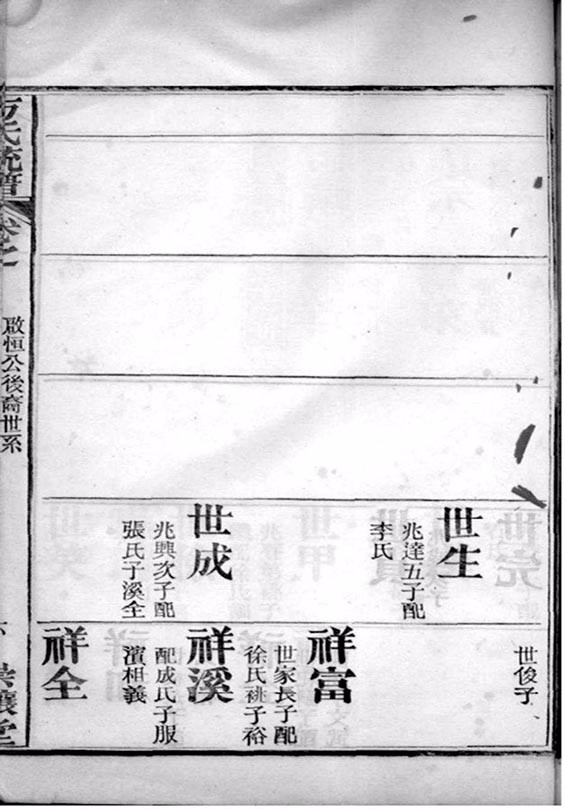 世生
兆達五子配
李氏
世成
兆興次子配
張氏子溪全
世俊子
祥富
世家長子配
徐氏祧子裕
祥溪
配成氏子服
濱相義
祥全
氏統譜
卷之
啟恒公後裔世系
堂